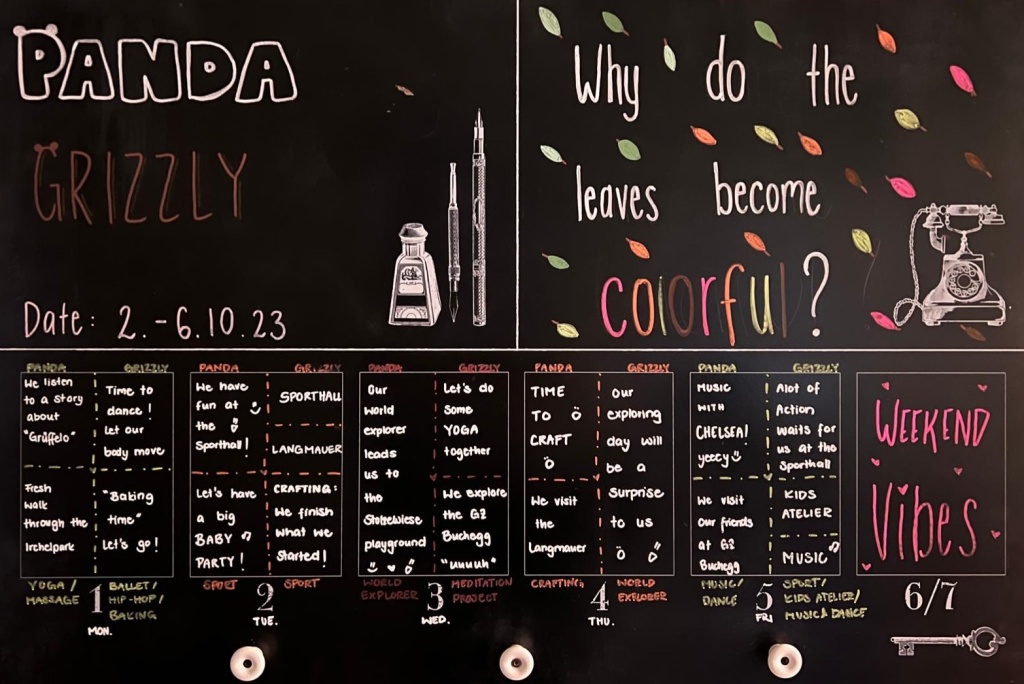 PANDA
GRIZZLY
Date: 2.-6.10.23
Why do the
leaves become
colorful?
PANDA
We listen
to a story
about
"Grüffelo"
Fresh
walk
through the
Irchelpark
YOGA/
MASSAGE
GRIZZLY
Time to
dance!
Let our
body move
"Baking
time"
Let's go!
BALLET/
HIP-HOP/
BAKING
1
MON.
PANDA
We have
fun at
the
Sporthall!
Let's have
a big
BABY
PARTY!
SPORT
GRIZZLY
SPORTHALL
LANGMAUER
CRAFTING:
We finish
what we
started!
SPORT
2
TUE.
PANDA
Our
world
explorer
leads
us to
the
Stolzewiese
playground
WORLD
EXPLORER
GRIZZLY
Let's do
some
YOGA
together
We explore
the GZ
Buchegg
"uuuuh"
MEDITATION
PROJECT
3
WED.
PANDA
TIME
TO
CRAFT
We visit
the
Langmauer
CRAFTING
GRIZZLY
Our
exploring
day will
be a
Surprise
to us
WORLD
EXPLORER
4
THU.
PANDA
MUSIC
WITH
CHELSEA!
yeecy
We visit
our friends
at GZ
Buchegg
MUSIC/
DANCE
GRIZZLY
Alot of
Action
waits for
us at the
Sporthall
KIDS
ATELIER
MUSIC
SPORT/
KIDS ATELIER/
MUSIC & DANCE
5
FRI
WEEKEND
Vibes
6/7